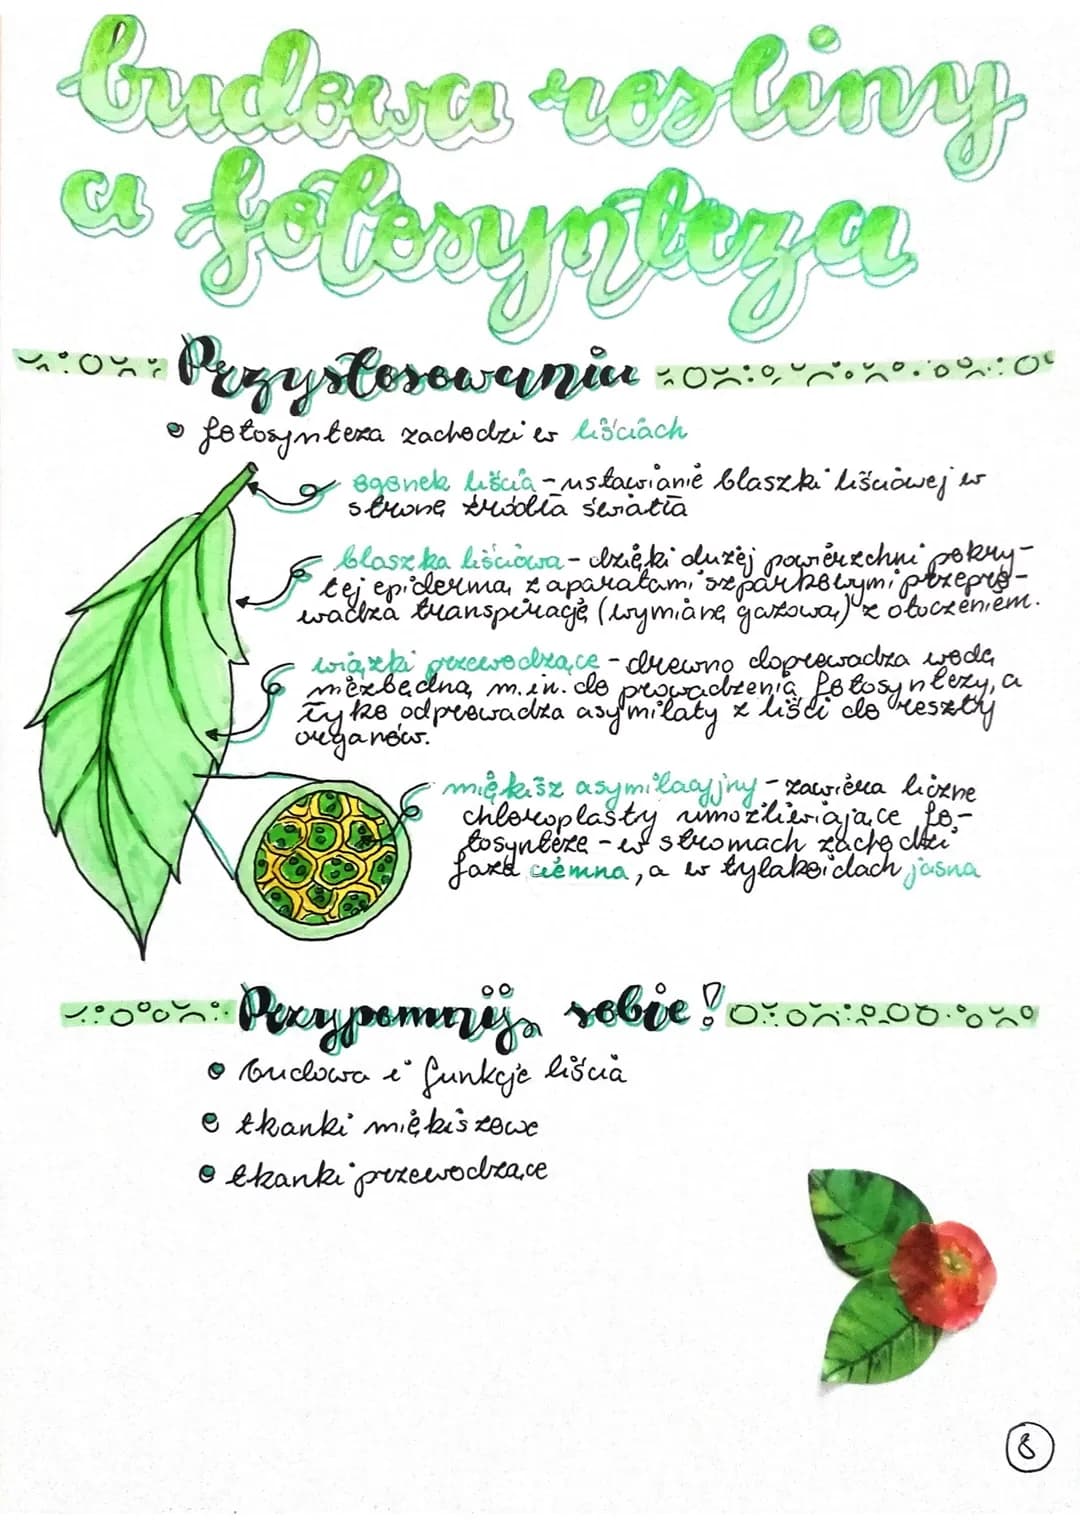 budowa rośliny
a fotosynteza
Przystosowania
fotosynteza zachodzi w liściach
ogonek liścia - ustawianie blaszki liściowej w
stronę źródła światła
blaszka liściowa - dzięki dużej powierzchni pokry-
tej epidermą z aparatami szparkowymi przepro-
wadza transpirację (wymianę gazową) z otoczeniem.
wiązki przewodzące - drewno doprowadza wodę
niezbędną m.in. do prowadzenia fotosyntezy, a
łyko odprowadza asymilaty z liści do reszty
organów.
miękisz asymilacyjny - zawiera liczne
chloroplasty umożliwiające fo-
tosyntezę - w stromach zachodzi
faza ciemna, a w tylakoidach jasna
Przypomnij sobie!
budowa i funkcje liścia
tkanki miękiszowe
tkanki przewodzące
8